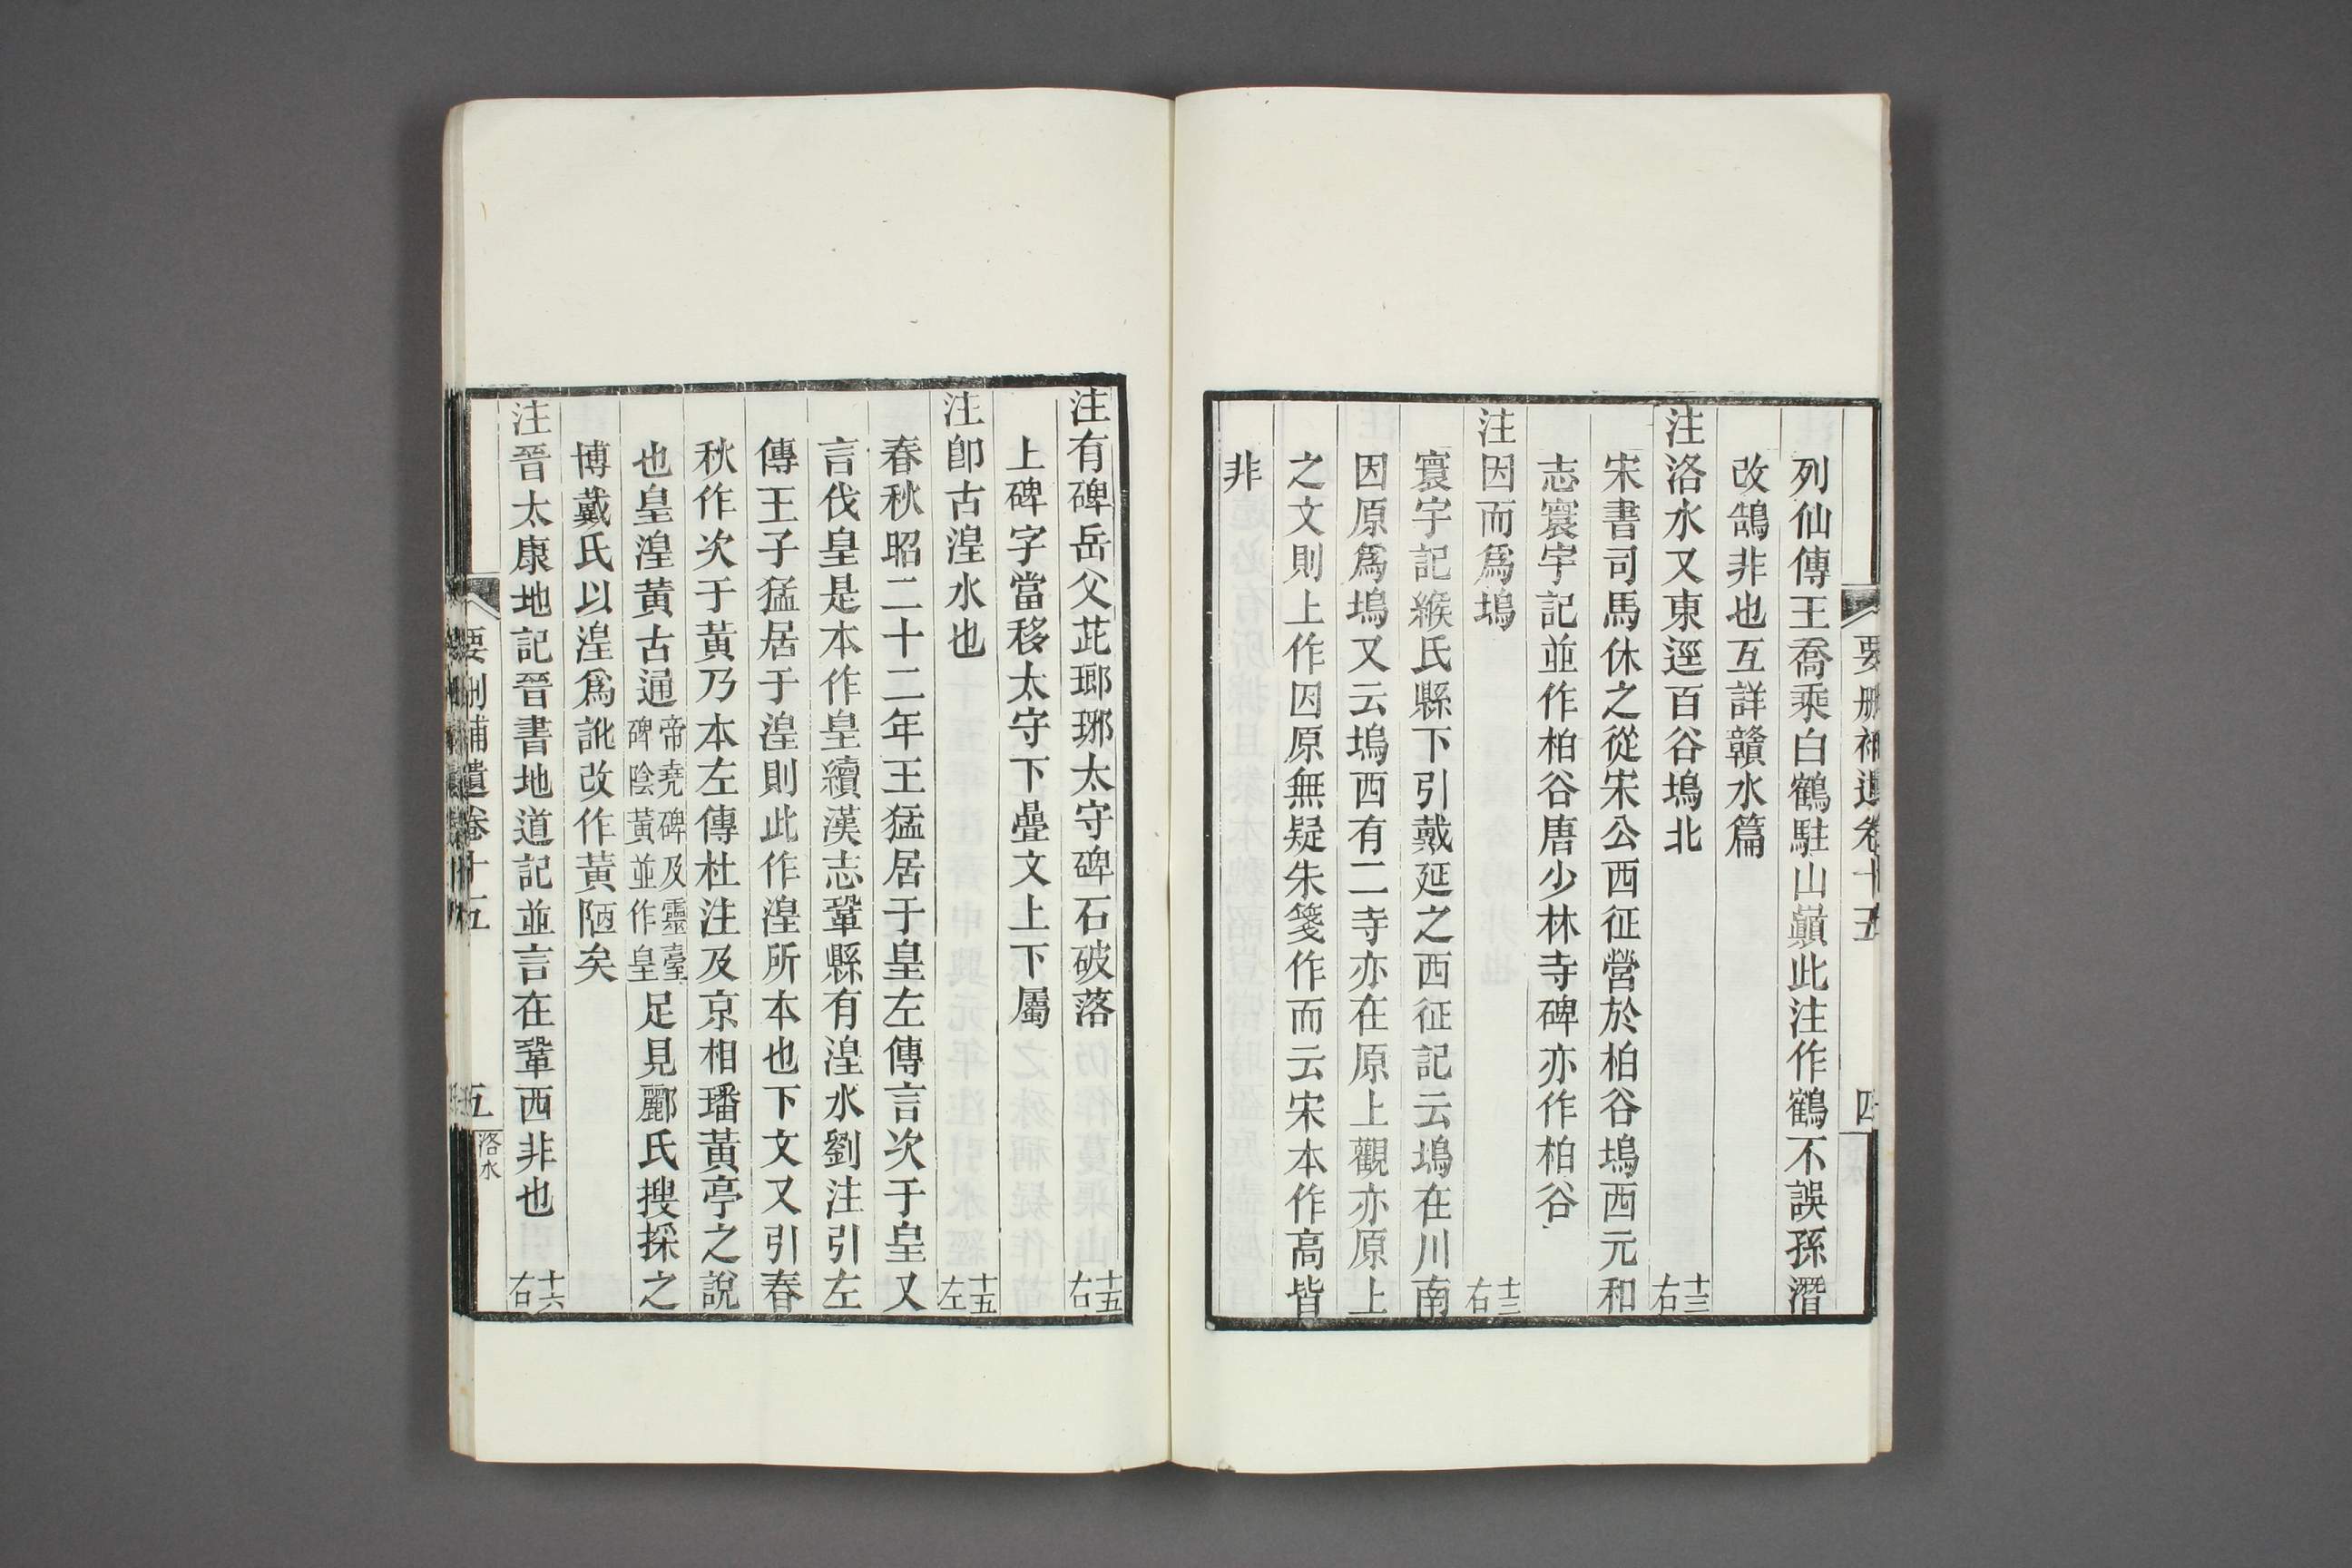 要刪補遺卷十五 四
列仙傳王喬乘白鶴駐山巔此注作鶴不誤孫潛
改鵠非也互詳贛水篇
注洛水又東逕百谷塢北 十三右
宋書司馬休之從宋公西征營於柏谷塢西元和
志寰宇記並作柏谷唐少林寺碑亦作柏谷
注因而爲塢 十三右
寰宇記緱氏縣下引戴延之西征記云塢在川南
因原爲塢又云塢西有二寺亦在原上觀亦原上
之文則上作因原無疑朱箋作而云宋本作高皆
非
注有碑岳父茈瑯琊太守碑石破落 十五右
上碑字當移太守下疊文上下屬
注卽古湟水也 十五左
春秋昭二十二年王猛居于皇左傳言次于皇又
言伐皇是本作皇續漢志鞏縣有湟水劉注引左
傳王子猛居于湟則此作湟所本也下文又引春
秋作次于黃乃本左傳杜注及京相璠黃亭之說
也皇湟黃古通帝堯碑及靈臺碑陰黃並作皇足見酈氏搜採之
博戴氏以湟爲訛改作黃陋矣
注晉太康地記晉書地道記並言在鞏西非也 十六右
要刪補遺卷十五 五 洛水